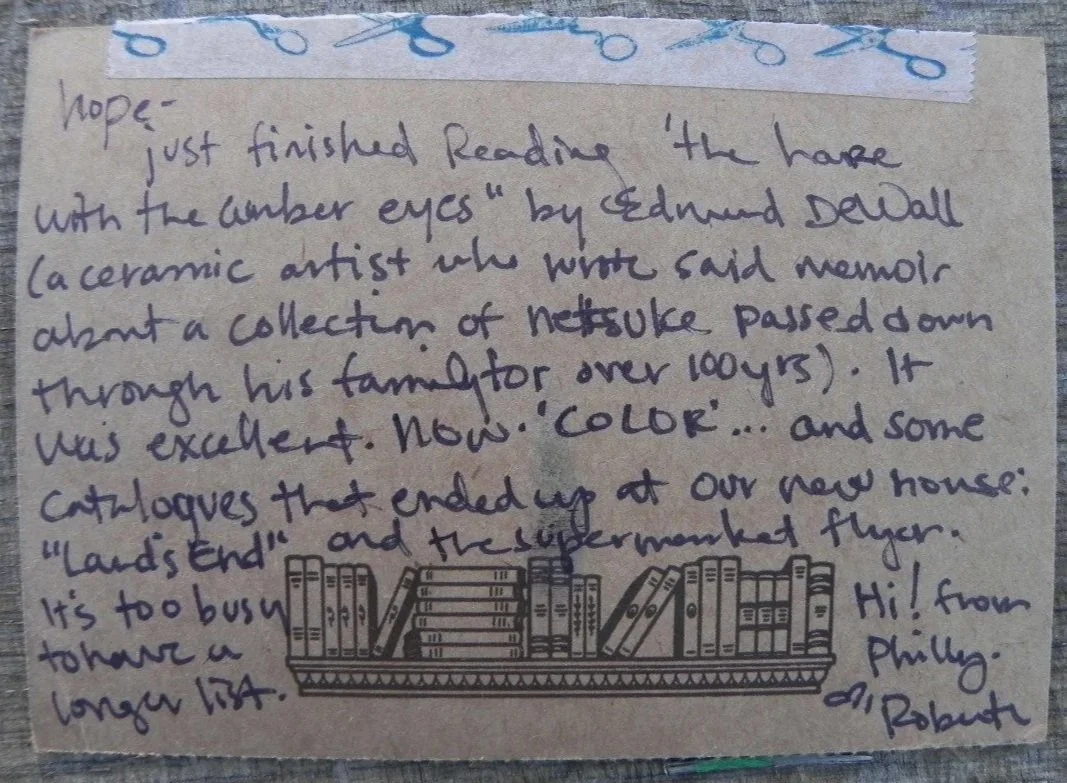 hope-
just finished Reading 'the hare
with the amber eyes" by Edmund DeWall
(a ceramic artist who wrote said memoir
about a collection of netsuke passed down
through his family for over 100 yrs). It
was excellent. Now. 'COLOR'... and some
catalogues that ended up at our new house:
"Land's End" and the supermarket flyer.
It's too busy
to have a
longer list.
Hi! from
Philly.